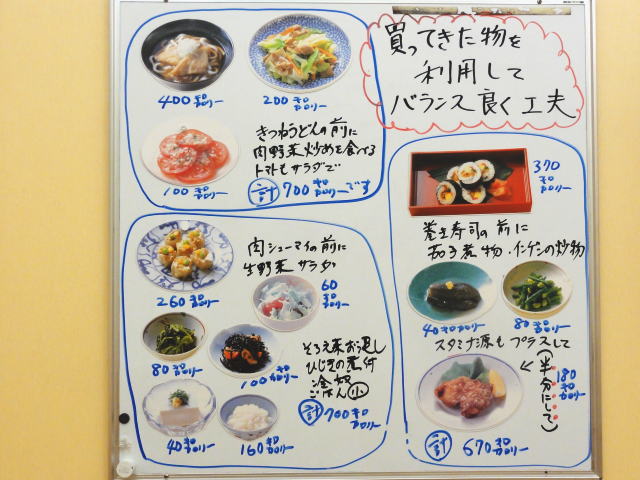 買ってきた物を
利用して
バランス良く工夫
400キロカロリー
200キロカロリー
100キロカロリー
きつねうどんの前に
肉野菜炒めを食べる
トマトもサラダで
計 700キロカロリーです
肉シューマイの前に
生野菜サラダ
260キロカロリー
60キロカロリー
80キロカロリー
100キロカロリー
そろえ菜お浸し
ひじきの煮付
冷奴
ごはん小
40キロカロリー
160キロカロリー
計 700キロカロリー
370キロカロリー
巻き寿司の前に
茄子煮物・インゲンの炒物
40キロカロリー
80キロカロリー
スタミナ源もプラスして
(半分にして)
180キロカロリー
計 670キロカロリー